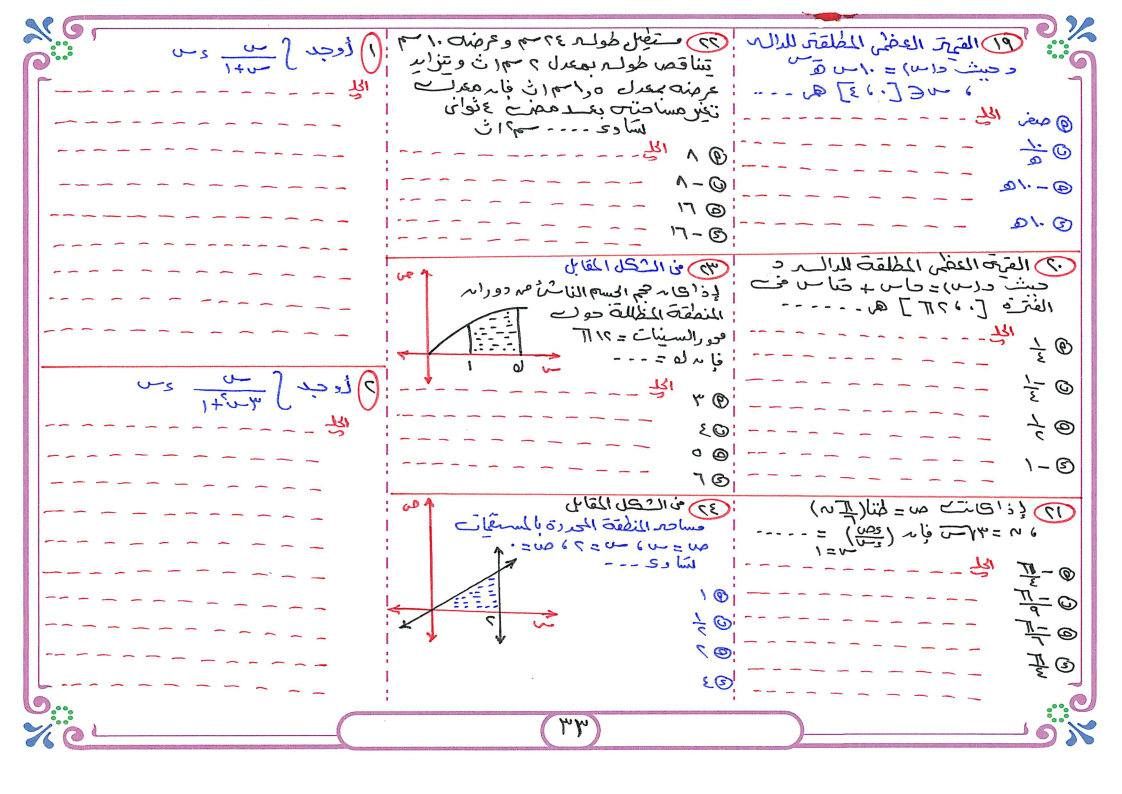 ١٩ القيمة العظمى المطلقة للدالة
د حيث د(س) = ١٠ س هـ^-س
، س ∈ [٠، ٤] هى ....
أ صفر
الحل
ب ١٠/هـ
ج -١٠هـ
د ١٠هـ
٢٠ القيمة العظمى المطلقة للدالة د
حيث د(س) = حاس + حتاس فى
الفترة [٠، ٢π] هى ......
الحل
أ ١/٤
ب
ج
د -١
٢١ إذا كانت ص = طتا(π/٦ ن)
، ن = ٣√س فإن (ءص/ءس) س=١ = .....
الحل
أ
ب
ج
د
٢٢ مستطيل طوله ٢٤ سم وعرضه ١٠ سم
يتناقص طوله بمعدل ٢ سم/ث ويتزايد
عرضه بمعدل ١,٥ سم/ث فإن معدل
تغير مساحته بعد مضى ٤ ثوانى
تساوى .... سم٢/ث
الحل
أ ٨
ب -٨
ج ١٦
د -١٦
٢٣ فى الشكل المقابل
إذا كان حجم الجسم الناشئ من دوران
المنطقة المظللة حول
محور السينات = ١٢π
فإن ك = ...
ص
س
١
ك
الحل
أ ٣
ب ٤
ج ٥
د ٦
٢٤ فى الشكل المقابل
مساحة المنطقة المحددة بالمستقيمات
ص = س، س = ٢، ص = ٠
تساوى ...
ص
س
٢
أ ١
ب ١/٢
ج ٢
د ٤
١ أوجد ∫ س/(س+١) ءس
الحل
٢ أوجد ∫ س/(٣س²+١) ءس
الحل
٣٣